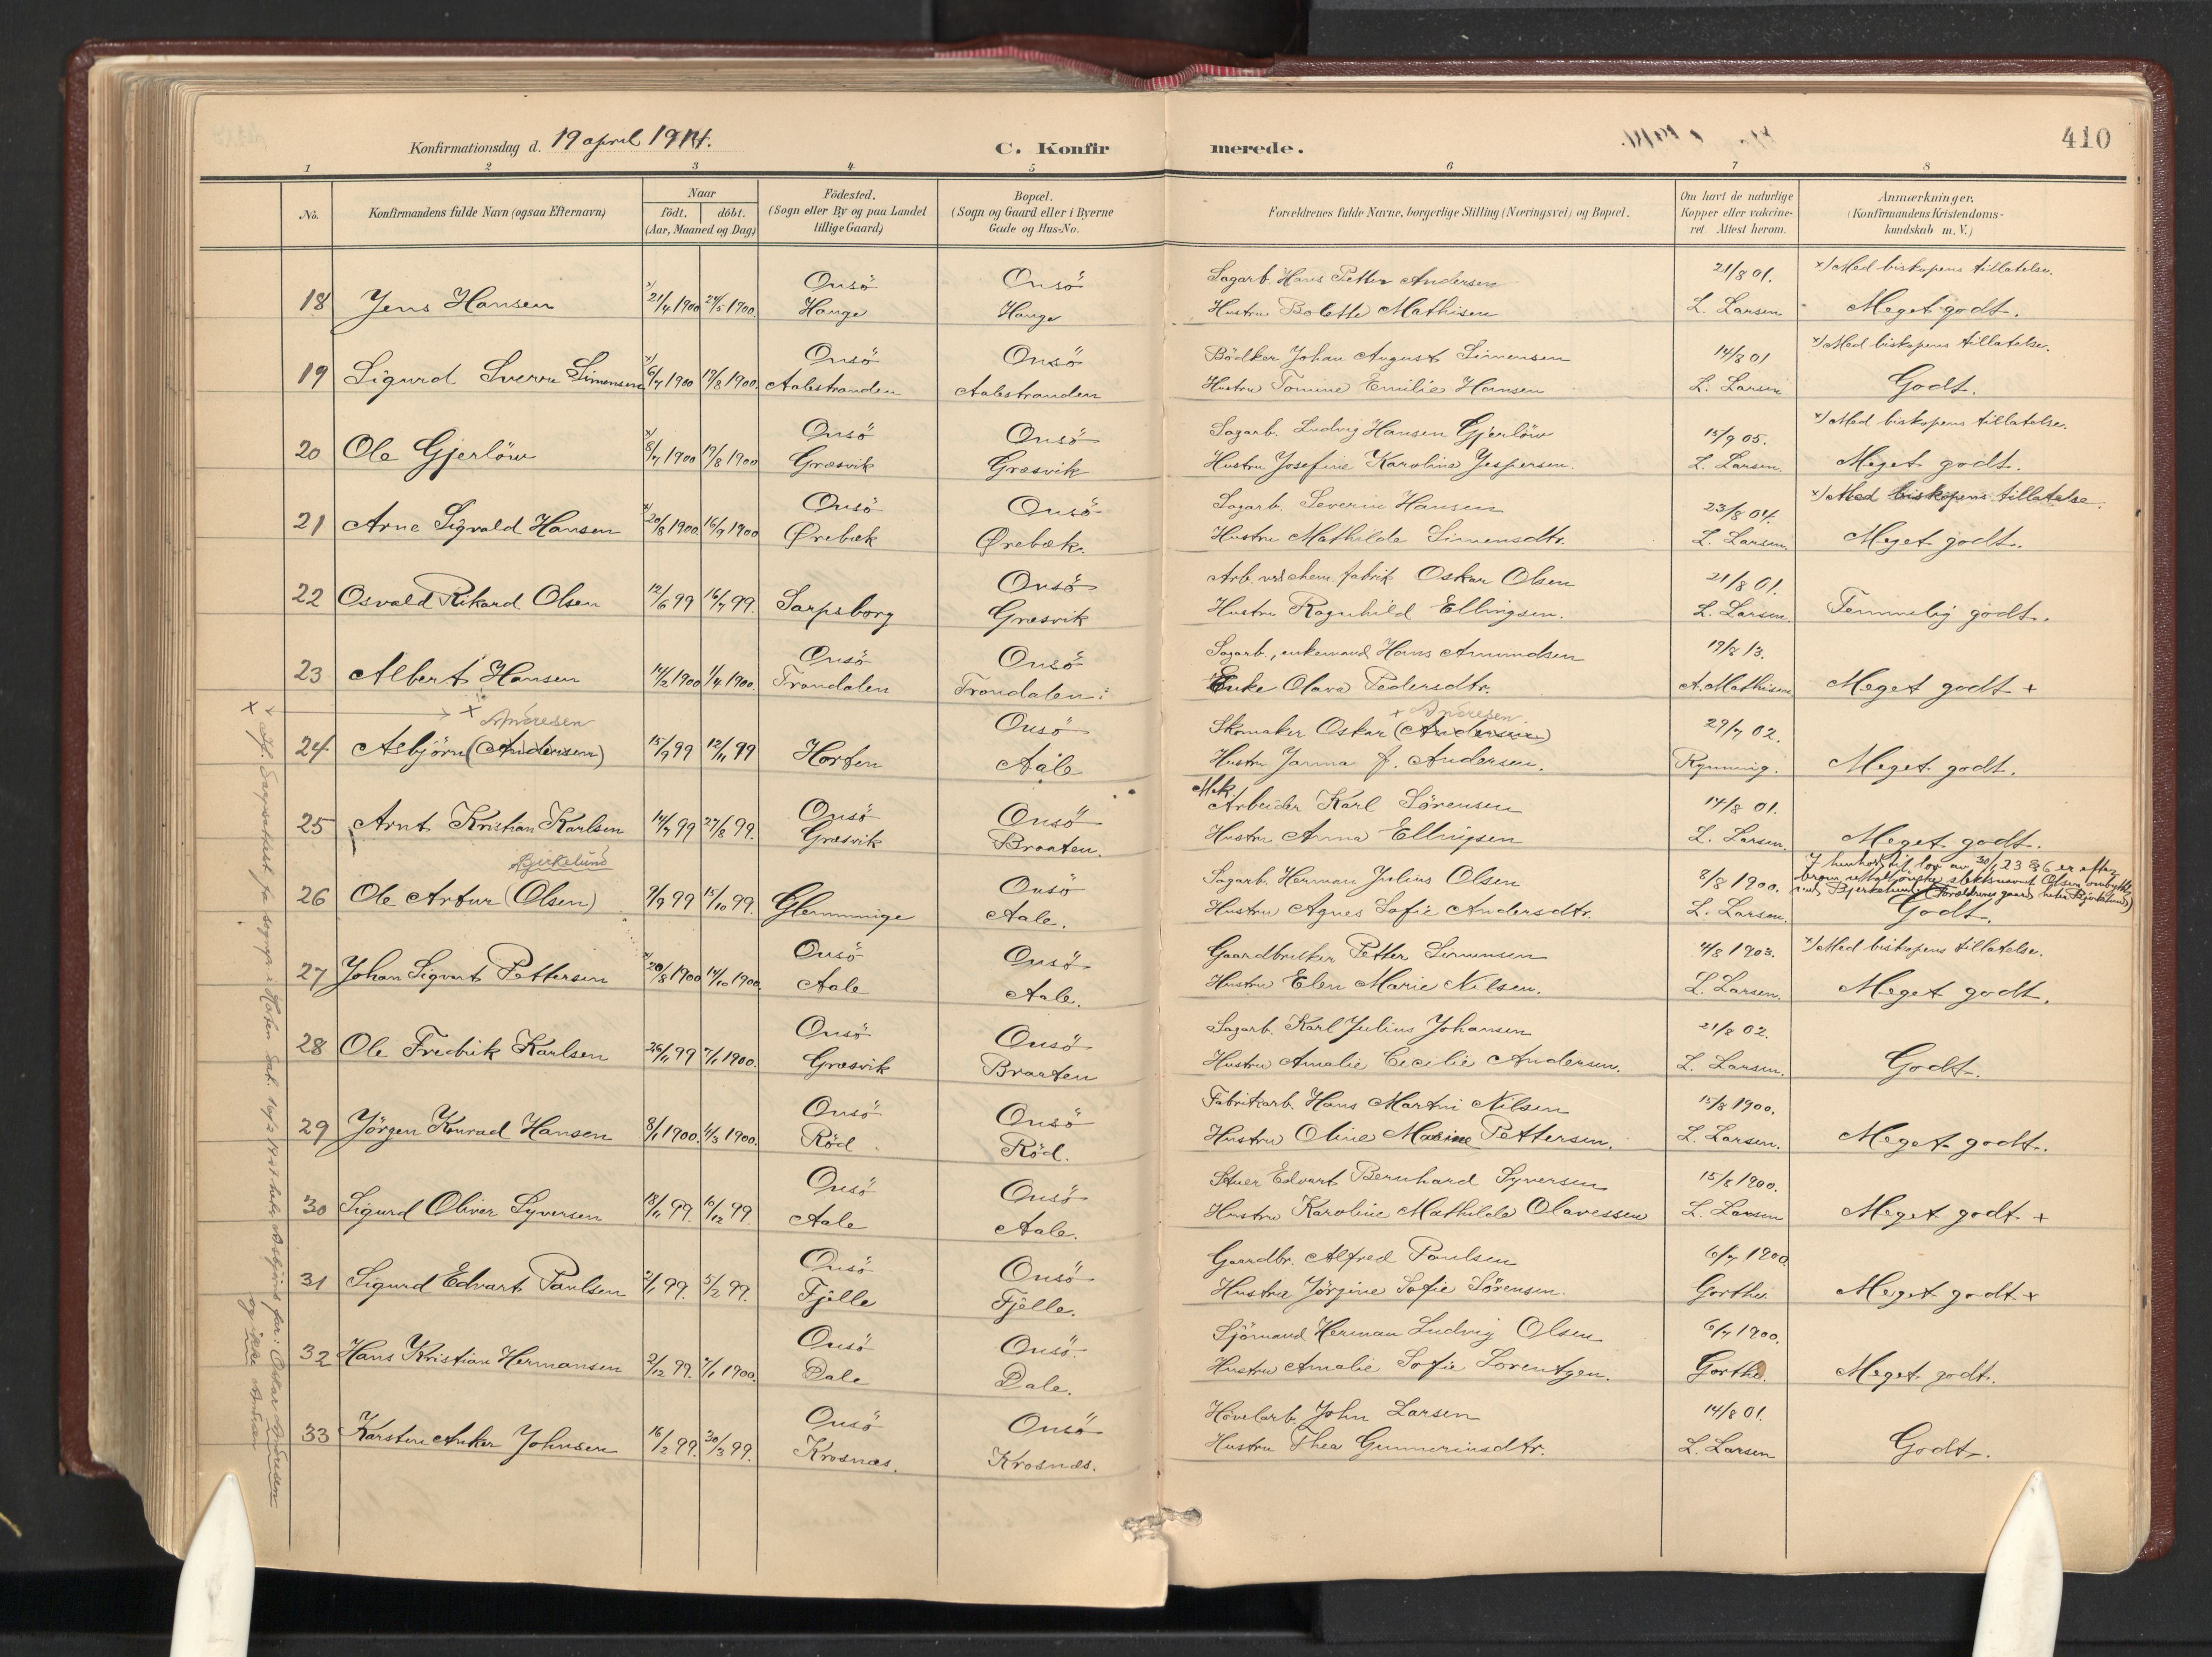 Konfirmationsdag d. 19 april 1914.
C. Konfirmerede.
410
1 2 3 4 5 6 7 8
No. Konfirmandens fulde Navn (ogsaa Efternavn) Naar födt. döbt. (Aar, Maaned og Dag) Födested. (Sogn eller By og paa Landet tillige Gaard) Bopæl. (Sogn og Gaard eller i Byerne Gade og Hus-No. Forældrenes fulde Navne, borgerlige Stilling (Næringsvei) og Bopæl. Om havt de naturlige Kopper eller vakcineret. Attest herom. Anmærkninger. (Konfirmandens Kristendomskundskab m. V.)
Onsö Onsö Sagarb. Hans Petter Andersen 21/8 01. x) Med biskopens tillatelse.
18 Jens Hansen x) 21/4 1900 24/5 1900. Hauge Hauge Hustru Bolette Mathisen L. Larsen Meget godt.
Onsö Onsö Bödker Johan August Simensen 14/8 01 x) Med biskopens tillatelse.
19 Sigurd Sverre Simensen x) 6/7 1900 19/8 1900. Aalestranden Aalestranden Hustru Tomine Emilie Hansen L. Larsen Godt.
Onsö Onsö Sagarb. Ludvig Hansen Gjerlöw 15/9 05. x) Med biskopens tillatelse.
20 Ole Gjerlöw x) 8/7 1900 19/8 1900 Græsvik Græsvik Hustru Josefine Karoline Jespersen. L. Larsen. Meget godt.
Onsö Onsö Sagarb. Severin Hansen 23/8 04. x) Med biskopens tillatelse.
21 Arne Sigvald Hansen x) 20/8 1900. 16/9 1900 Ørebæk Ørebæk. Hustru Mathilde Simensdtr. L. Larsen. Meget godt.
Onsö Arb. ved chem. fabrik Oskar Olsen 21/8 01.
22 Osvald Rikard Olsen 12/6 99 16/7 99. Sarpsborg Græsvik Hustru Ragnhild Ellingsen. L. Larsen. Temmelig godt.
Onsö Onsö Sagarb., enkemand Hans Amundsen 19/8 13.
23 Albert Hansen 14/2 1900 1/4 1900. Trondalen Trondalen. Enke Olava Pedersdtr. A. Mathisen Meget godt +
x Andresen Onsö x Andresen
Skomaker Oskar (Andersen) 29/7 02.
24 Asbjörn (Andersen) 15/9 99 12/11 99 Horten Aale Hustru Janna f. Andersen. Rynning. Meget godt.
Onsö Onsö Mek. Arbeider Karl Sörensen 14/8 01.
25 Arnt Kristian Karlsen 14/7 99 27/8 99. Græsvik Braaten. Hustru Anna Ellingsen L. Larsen. Meget godt.
Bjerkelund Onsö Sagarb. Herman Julius Olsen 8/8 1900. I henhold til lov av 23 § 6 er efter slektsnavnet Olsen ombyttet med Bjerkelund (Forældrenes gaard heter Bjerkelund)
26 Ole Artur (Olsen) 9/9 99 15/10 99. Glemminge Aale. Hustru Agnes Sofie Andersdtr. L. Larsen. Godt.
Onsö Onsö Gaardbruker Petter Simensen 4/8 1903. x) Med biskopens tillatelse.
27 Johan Sigvart Pettersen x) 20/8 1900 14/10 1900. Aale Aale. Hustru Elen Marie Nilsen. L. Larsen. Meget godt.
Onsö Onsö Sagarb. Karl Julius Johansen 21/8 02.
28 Ole Fredrik Karlsen 26/11 99 7/1 1900. Græsvik Braaten Hustru Amalie Cecilie Andersen. L. Larsen. Godt.
Onsö Onsö Fabrikarb. Hans Martin Nilsen 15/8 1900.
29 Jörgen Konrad Hansen 8/1 1900. 4/3 1900. Röd. Röd. Hustru Oline Marine Pettersen. L. Larsen. Meget godt.
Onsö Onsö Stuer Edvart Bernhard Syversen 15/8 1900.
30 Sigurd Oliver Syversen 18/11 99. 10/12 99. Aale Aale. Hustru Karoline Mathilde Olavessen L. Larsen Meget godt +
Onsö Onsö Gaardbr. Alfred Paulsen 6/7 1900
31 Sigurd Edvart Paulsen 2/1 99. 5/2 99. Fjelle Fjelle. Hustru Jörgine Sofie Sörensen. Gorthe. Meget godt +
Onsö Onsö. Sjömand Herman Ludvig Olsen 6/7 1900.
32 Hans Kristian Hermansen 2/12 99. 7/1 1900. Dale Dale. Hustru Amalie Sofie Lorentzen. Gorthe. Meget godt.
Onsö Onsö Hövelarb. John Larsen 14/8 01.
33 Karsten Anker Johnsen 16/2 99. 30/3 99. Krosnæs. Krosnæs. Hustru Thea Gunnerinsdtr. L. Larsen Godt.
x Jf. fra sogepr. i Horten dat. heter Asbjörns far: Oskar Andresen
og ikke Andersen